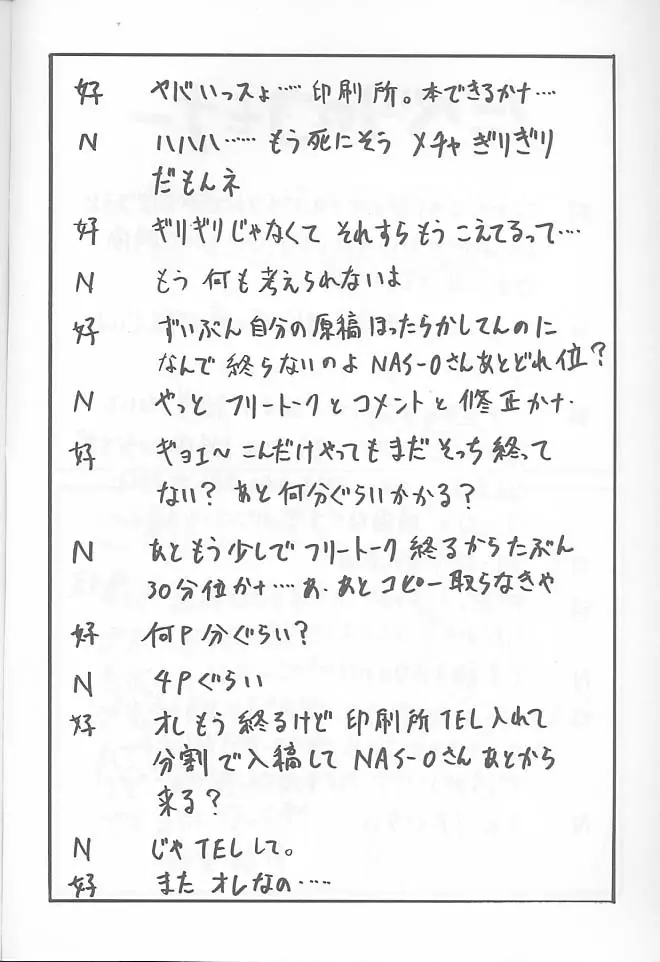 好 ヤバいっスょ……印刷所。本できるかナ…
N ハハハ……もう死にそう メチャぎりぎり
だもんネ
好 ギリギリじゃなくて それすらもうこえてるって…
N もう何も考えられないよ
好 ずいぶん自分の原稿ほったらかしてんのに
なんで終らないのよ NAS-Oさんあとどれ位?
N やっと フリートークとコメントと修正かナ・
好 ギョエ〜こんだけやってもまだそっち終って
ない? あと何分ぐらいかかる?
N あともう少しでフリートーク終るからたぶん
30分位かナ…. あ. あとコピー取らなきゃ
好 何P分ぐらい?
N 4Pぐらい
好 オレもう終るけど印刷所TEL入れて
分割で入稿して NAS-Oさんあとから
来る?
N じゃTELして。
好 またオレなの……